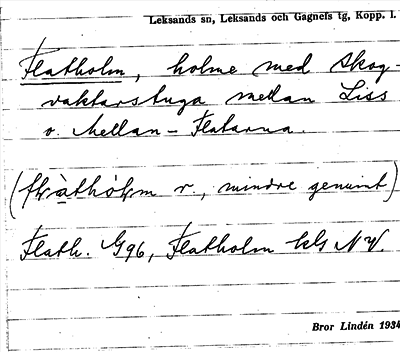 Leksands sn, Leksands och Gagnefs tg, Kopp. l.
Flatholm, holme med skog-
vaktarstuga mellan Liss
o. Mellan-Flatarna.
r., mindre genuint)
Flath. G96, Flatholm kls NV.
Bror Lindén 1934